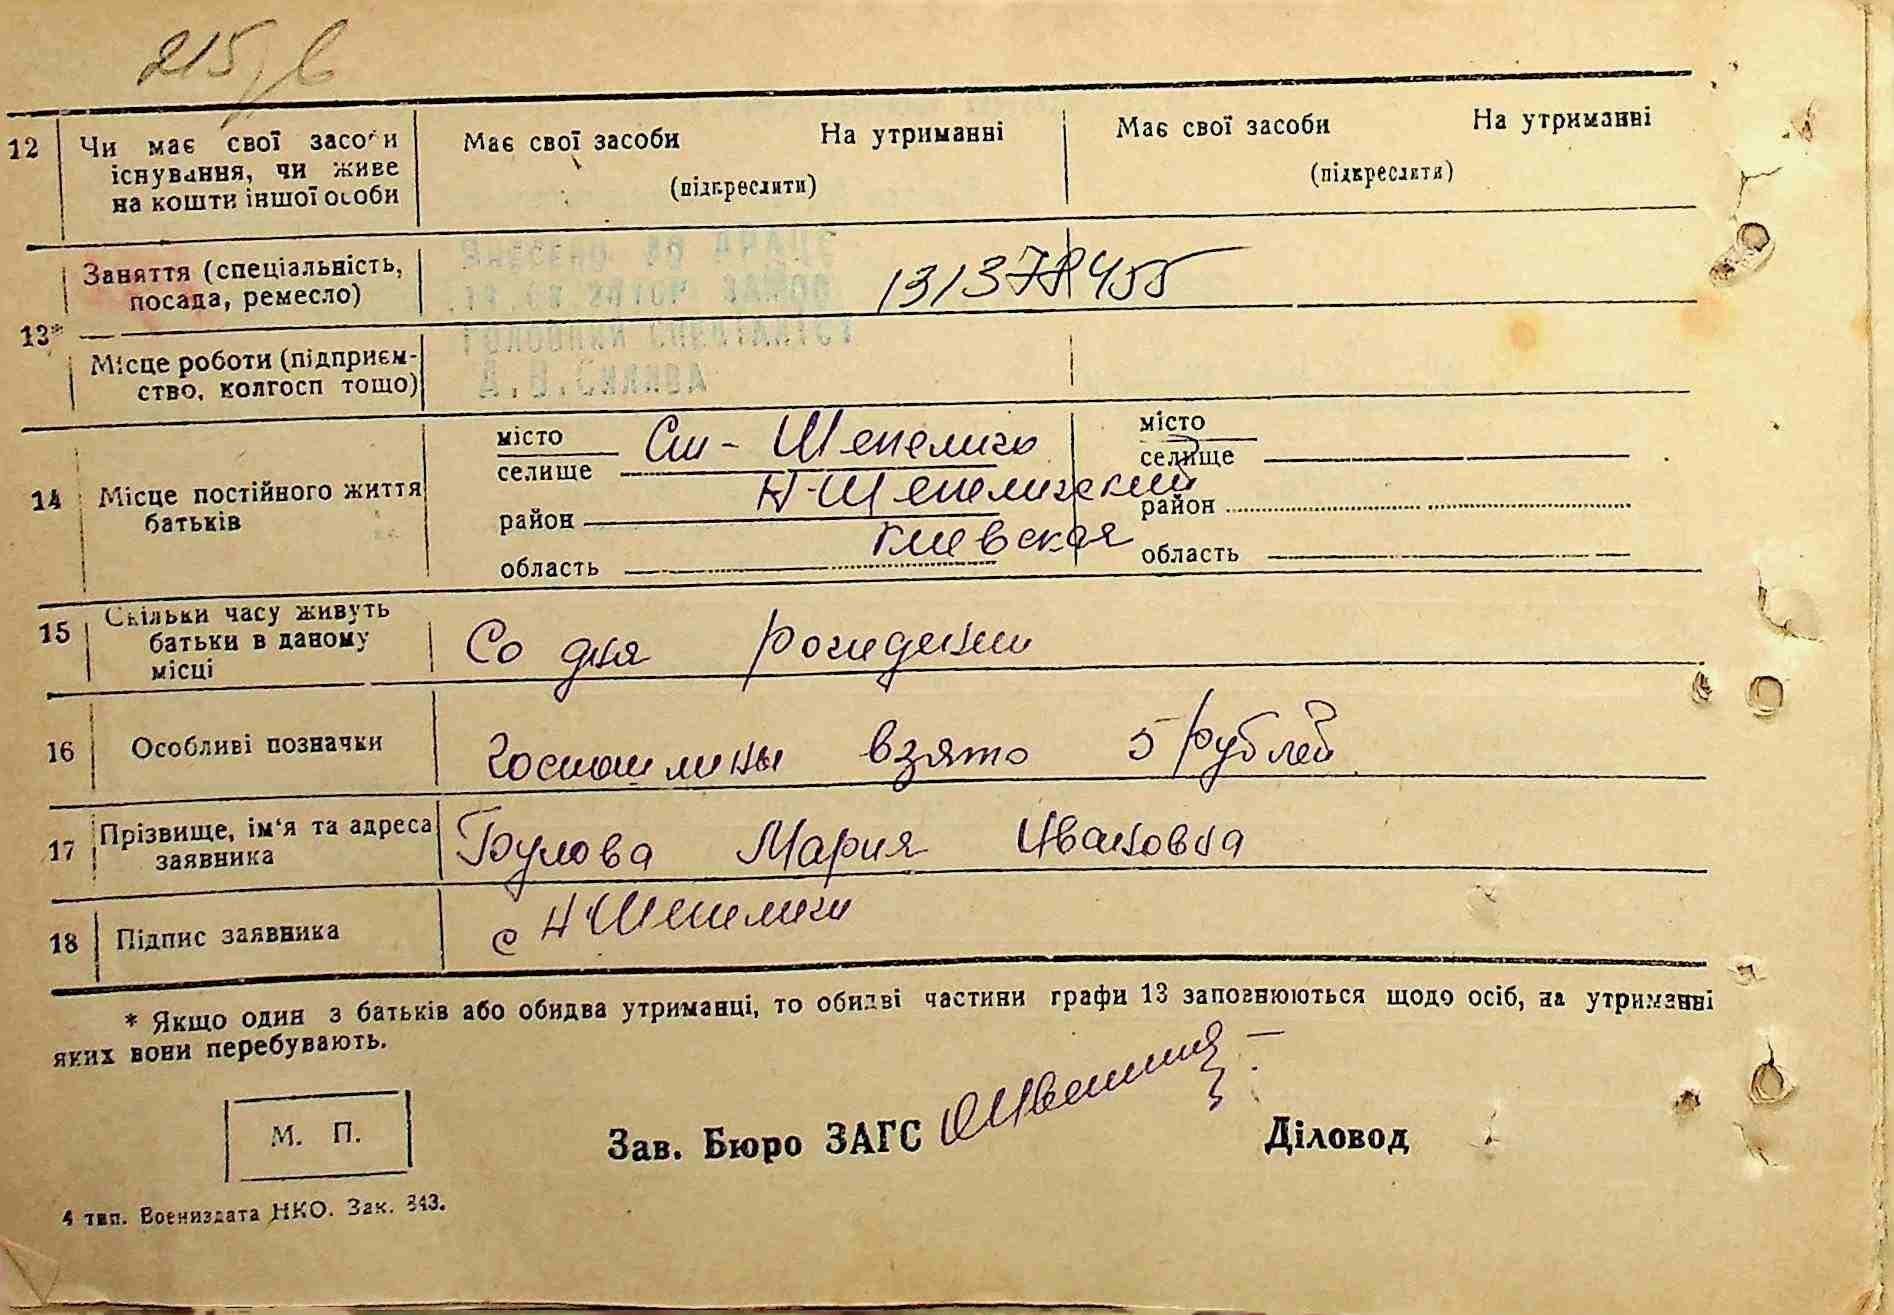 215
12 Чи має свої засоби Має свої засоби На утриманні Має свої засоби На утриманні
існування, чи живе (підкреслити) (підкреслити)
на кошти іншої особи
ВНЕСЕНО ДО
Заняття (спеціальність,
посада, ремесло)
ГОЛОВНИЙ СПЕЦІАЛІСТ
13*
Місце роботи (підприєм-
ство, колгосп тощо)
14 Місце постійного життя
батьків
місто
селище Ст-Шепеличо
район Н-Шепеличский
область Киевская
місто
селище
район
область
15 Скільки часу живуть
батьки в даному
місці
Со дня рождения
16 Особливі позначки Госпошлины взято 5 рублей
17 Прізвище, ім'я та адреса
заявника
Булова Мария Ивановна
18 Підпис заявника с Н Шепеличи
* Якщо один з батьків або обидва утриманці, то обидві частини графи 13 заповнюються щодо осіб, на утриманні
яких вони перебувають.
М. П.
Зав. Бюро ЗАГС Діловод
4 тип. Воениздата НКО. Зак. 343.